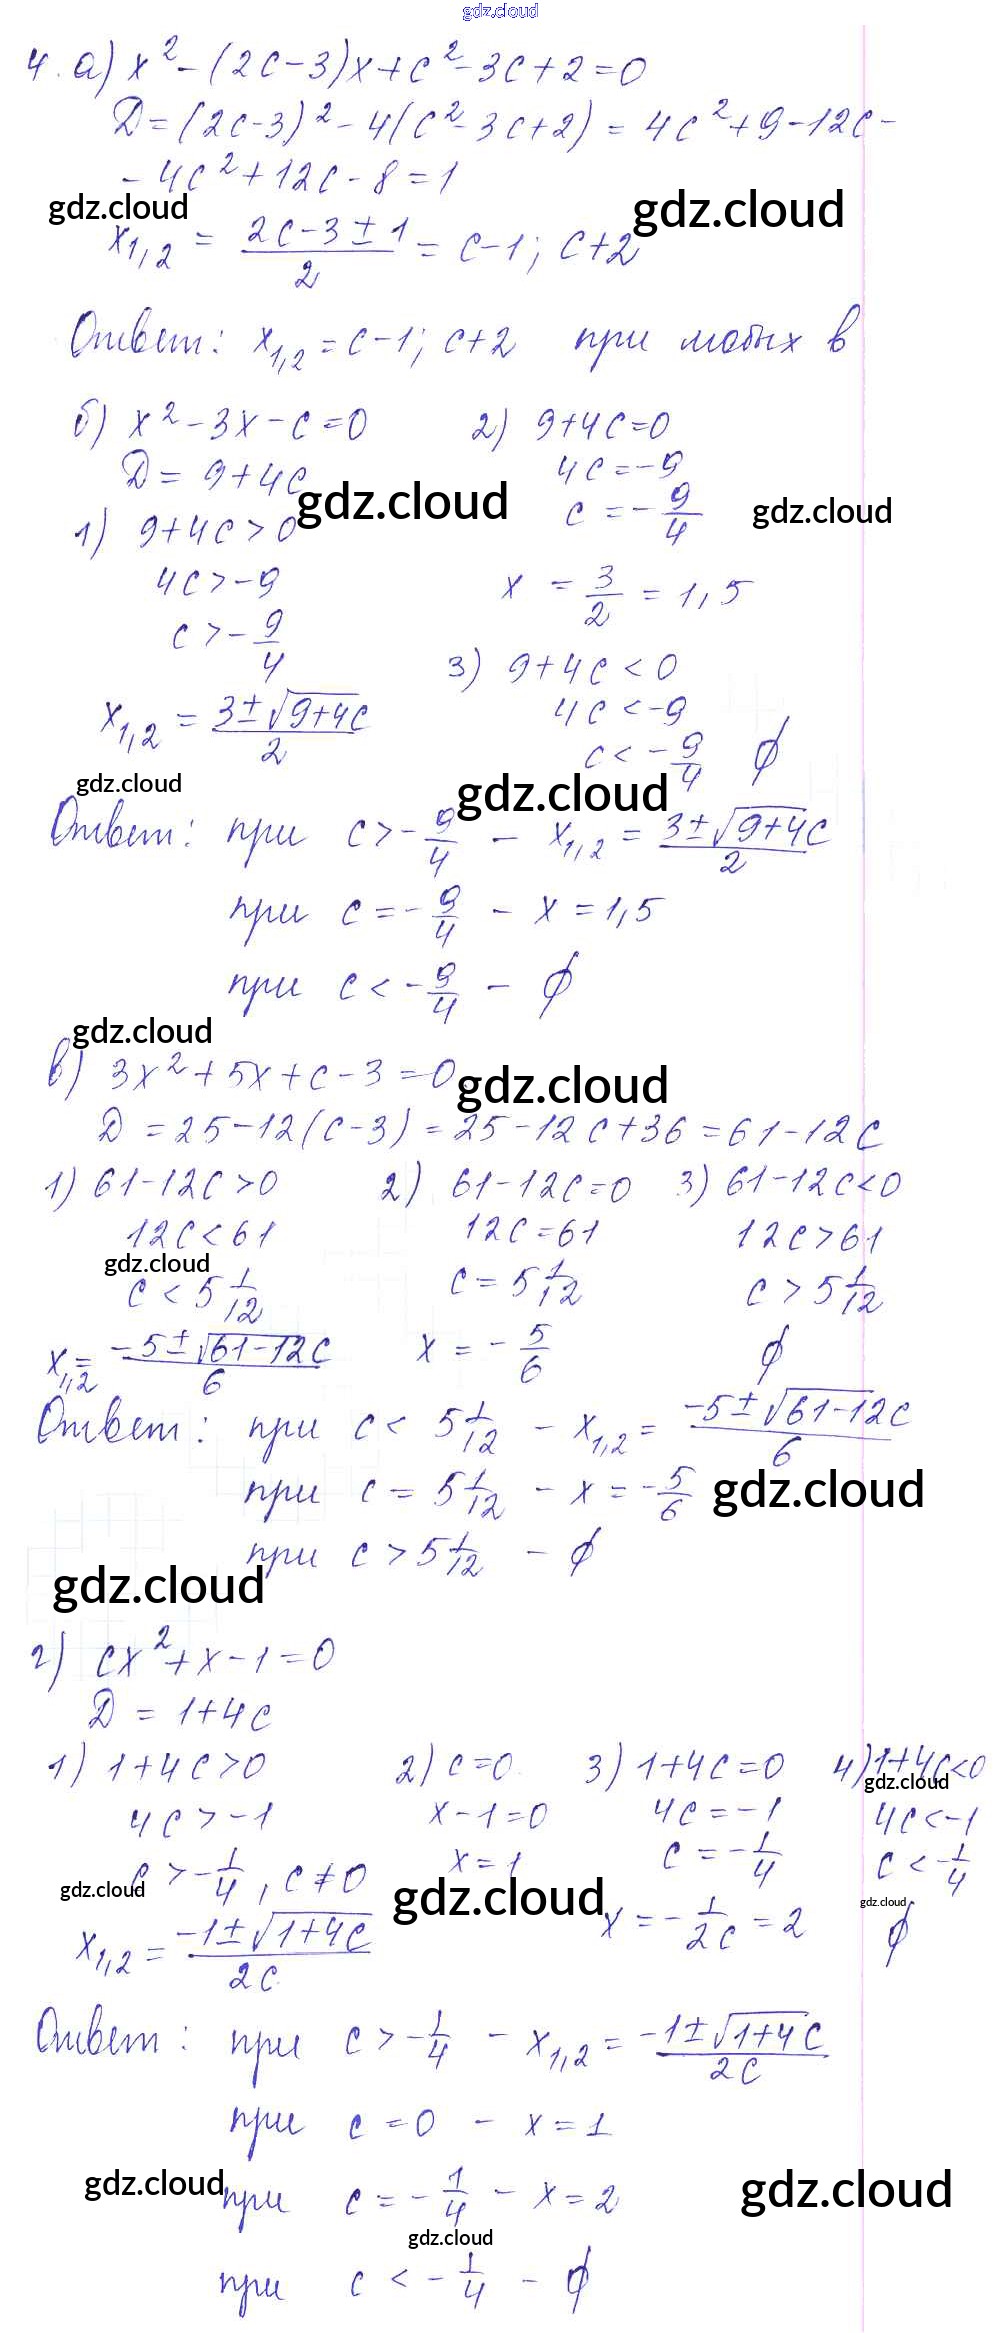 gdz.cloud
4. а) x² - (2c - 3)x + c² - 3c + 2 = 0
D = (2c - 3)² - 4(c² - 3c + 2) = 4c² + 9 - 12c -
- 4c² + 12c - 8 = 1
gdz.cloud gdz.cloud
x₁,₂ = (2c - 3 ± 1)/2 = c - 1; c + 2
Ответ: x₁,₂ = c - 1; c + 2 при любых в
б) x² - 3x - c = 0
D = 9 + 4c
gdz.cloud
1) 9 + 4c > 0
4c > -9
c > -9/4
x₁,₂ = (3 ± √(9+4c))/2
2) 9 + 4c = 0
4c = -9
c = -9/4
gdz.cloud
x = 3/2 = 1,5
3) 9 + 4c < 0
4c < -9
c < -9/4 ∅
gdz.cloud gdz.cloud
Ответ: при c > -9/4 - x₁,₂ = (3 ± √(9+4c))/2
при c = -9/4 - x = 1,5
при c < -9/4 - ∅
gdz.cloud
в) 3x² + 5x + c - 3 = 0
gdz.cloud
D = 25 - 12(c - 3) = 25 - 12c + 36 = 61 - 12c
1) 61 - 12c > 0
12c < 61
gdz.cloud
c < 5 1/12
x₁,₂ = (-5 ± √(61-12c))/6
2) 61 - 12c = 0
12c = 61
c = 5 1/12
x = -5/6
3) 61 - 12c < 0
12c > 61
c > 5 1/12
∅
Ответ: при c < 5 1/12 - x₁,₂ = (-5 ± √(61-12c))/6
при c = 5 1/12 - x = -5/6
gdz.cloud
при c > 5 1/12 - ∅
gdz.cloud
г) cx² + x - 1 = 0
D = 1 + 4c
1) 1 + 4c > 0
4c > -1
c > -1/4, c ≠ 0
gdz.cloud
x₁,₂ = (-1 ± √(1+4c))/2c
2) c = 0
x - 1 = 0
x = 1
gdz.cloud
3) 1 + 4c = 0
4c = -1
c = -1/4
x = -1/2c = 2
4) 1 + 4c < 0
gdz.cloud
4c < -1
c < -1/4
gdz.cloud
∅
Ответ: при c > -1/4 - x₁,₂ = (-1 ± √(1+4c))/2c
при c = 0 - x = 1
gdz.cloud gdz.cloud
при c = -1/4 - x = 2
gdz.cloud
при c < -1/4 - ∅